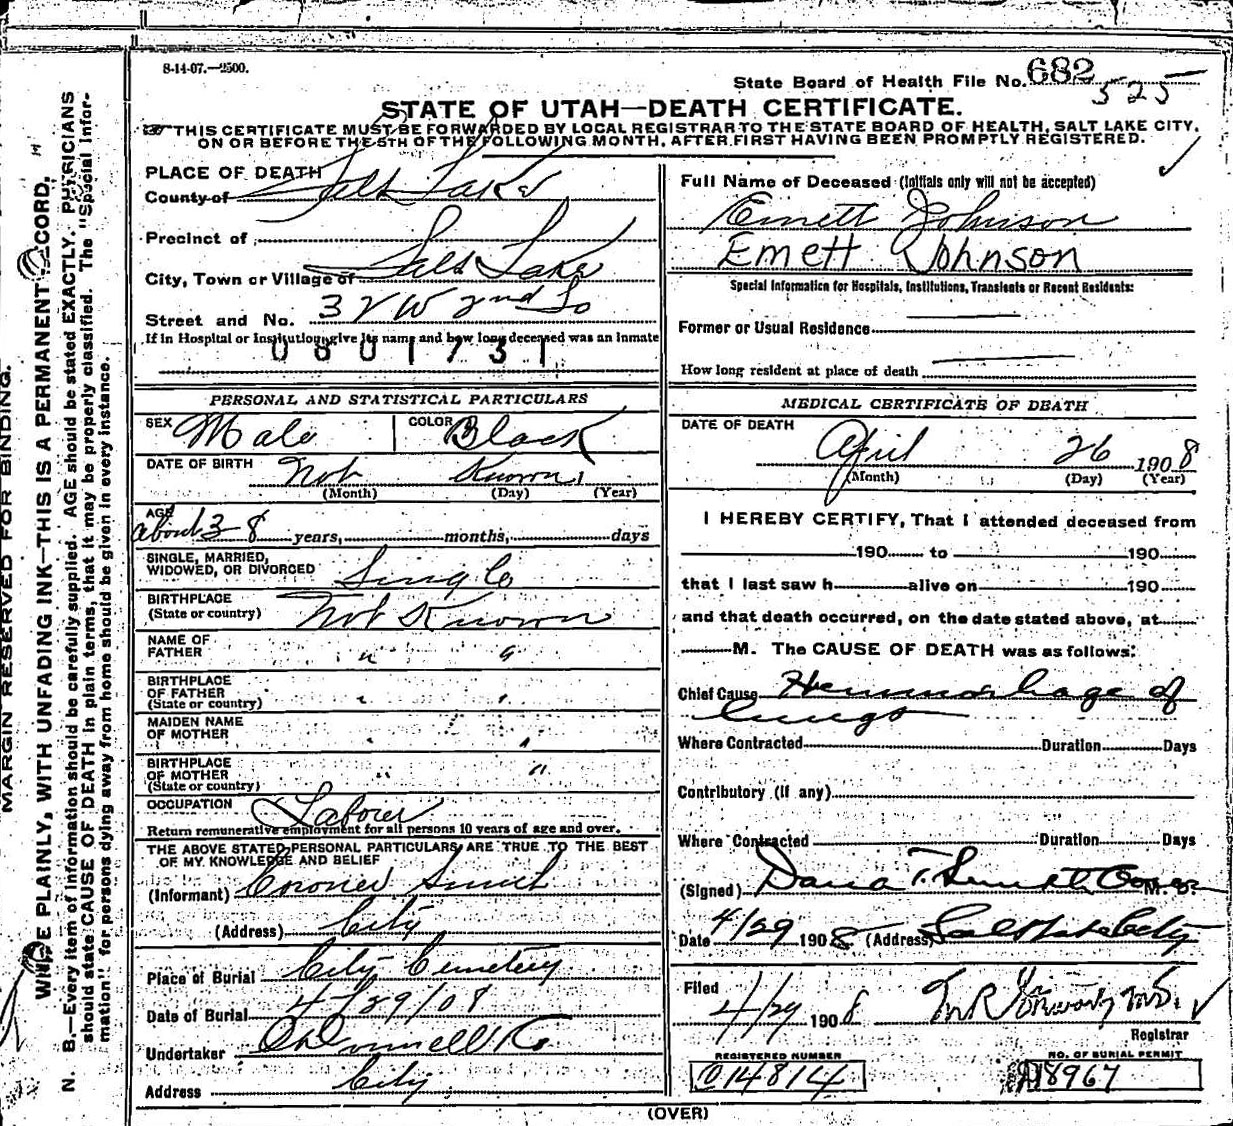 8-14-07.—2500.
State Board of Health File No. 682
325
STATE OF UTAH—DEATH CERTIFICATE.
THIS CERTIFICATE MUST BE FORWARDED BY LOCAL REGISTRAR TO THE STATE BOARD OF HEALTH, SALT LAKE CITY,
ON OR BEFORE THE 5TH OF THE FOLLOWING MONTH, AFTER FIRST HAVING BEEN PROMPTLY REGISTERED.
MARGIN RESERVED FOR BINDING.
WRITE PLAINLY, WITH UNFADING INK—THIS IS A PERMANENT RECORD.
N. B.—Every item of information should be carefully supplied. AGE should be stated EXACTLY. PHYSICIANS
should state CAUSE OF DEATH in plain terms, that it may be properly classified. The "Special Infor-
mation" for persons dying away from home should be given in every instance.
PLACE OF DEATH
County of Salt Lake
Precinct of
City, Town or Village of Salt Lake
Street and No. 32 W 2nd So
If in Hospital or Institution, give its name and how long deceased was an inmate
0801731
PERSONAL AND STATISTICAL PARTICULARS
SEX Male COLOR Black
DATE OF BIRTH Not Known
(Month) (Day) (Year)
AGE
about 38 years, months, days
SINGLE, MARRIED,
WIDOWED, OR DIVORCED Single
BIRTHPLACE
(State or country) Not Known
NAME OF
FATHER " "
BIRTHPLACE
OF FATHER
(State or country) " "
MAIDEN NAME
OF MOTHER " "
BIRTHPLACE
OF MOTHER
(State or country) " "
OCCUPATION Laborer
Return remunerative employment for all persons 10 years of age and over.
THE ABOVE STATED PERSONAL PARTICULARS ARE TRUE TO THE BEST
OF MY KNOWLEDGE AND BELIEF
(Informant) Coroner Smith
(Address) City
Place of Burial City Cemetery
Date of Burial 4/29/08
Undertaker O'Donnell & Co
Address City
Full Name of Deceased (Initials only will not be accepted)
Emett Johnson
Emett Johnson
Special Information for Hospitals, Institutions, Transients or Recent Residents:
Former or Usual Residence
How long resident at place of death
MEDICAL CERTIFICATE OF DEATH
DATE OF DEATH
April 26 1908
(Month) (Day) (Year)
I HEREBY CERTIFY, That I attended deceased from
190 to 190
that I last saw h alive on 190
and that death occurred, on the date stated above, at
M. The CAUSE OF DEATH was as follows:
Chief Cause Hemmorhage of
lungs
Where Contracted Duration Days
Contributory (if any)
Where Contracted Duration Days
(Signed) Dana T. Smith M. D.
Date 4/29 1908 (Address) Salt Lake City
Filed
4/29 1908
Registrar
REGISTERED NUMBER
014814
NO. OF BURIAL PERMIT
A18967
(OVER)